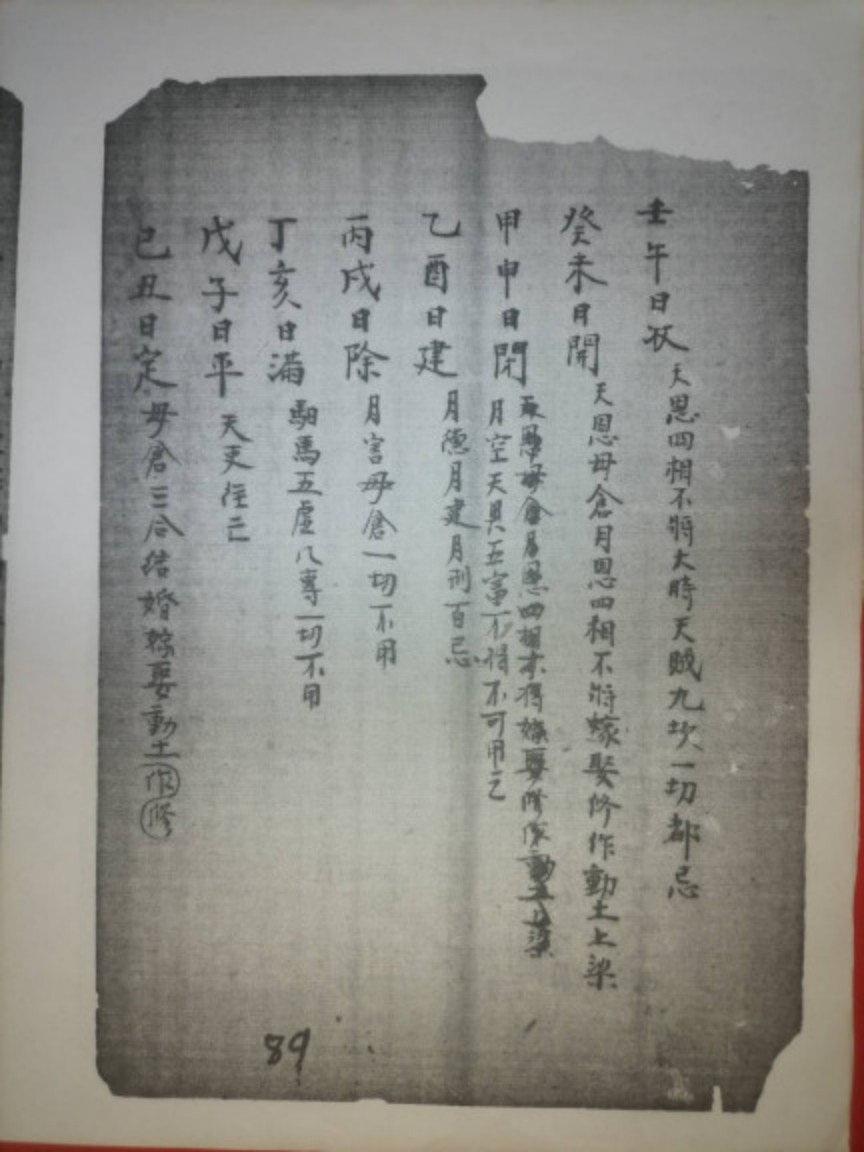 壬午日收 天恩四相不將大時天賊九坎一切都忌
癸未日開 天恩母倉月恩四相不將嫁娶修作動土上梁
甲申日閉 母倉月恩四相不得嫁娶修作動土上梁
月空天具五富不得不可用之
乙酉日建 月德月建月刑百忌
丙戌日除 月害母倉一切不用
丁亥日滿 馹馬五虛八專一切不用
戊子日平 天吏
己丑日定 母倉三合结婚嫁娶動土作修
89